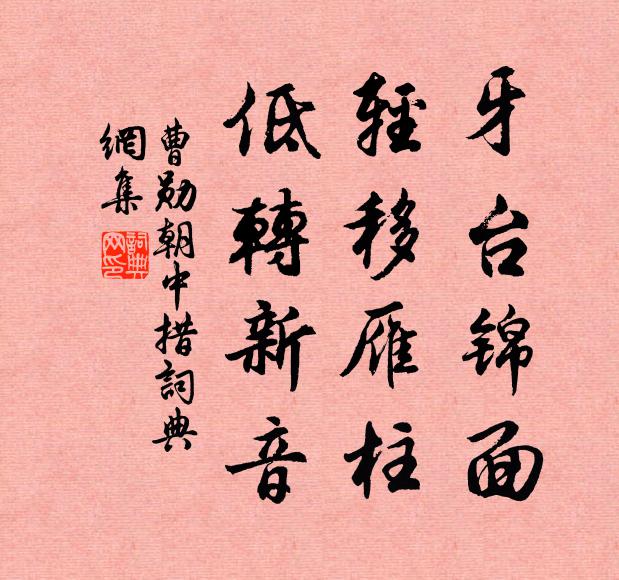 牙台锦面
輕移雁柱
低轉新音
曹勛朝中措詞典
網集
詞典
网印